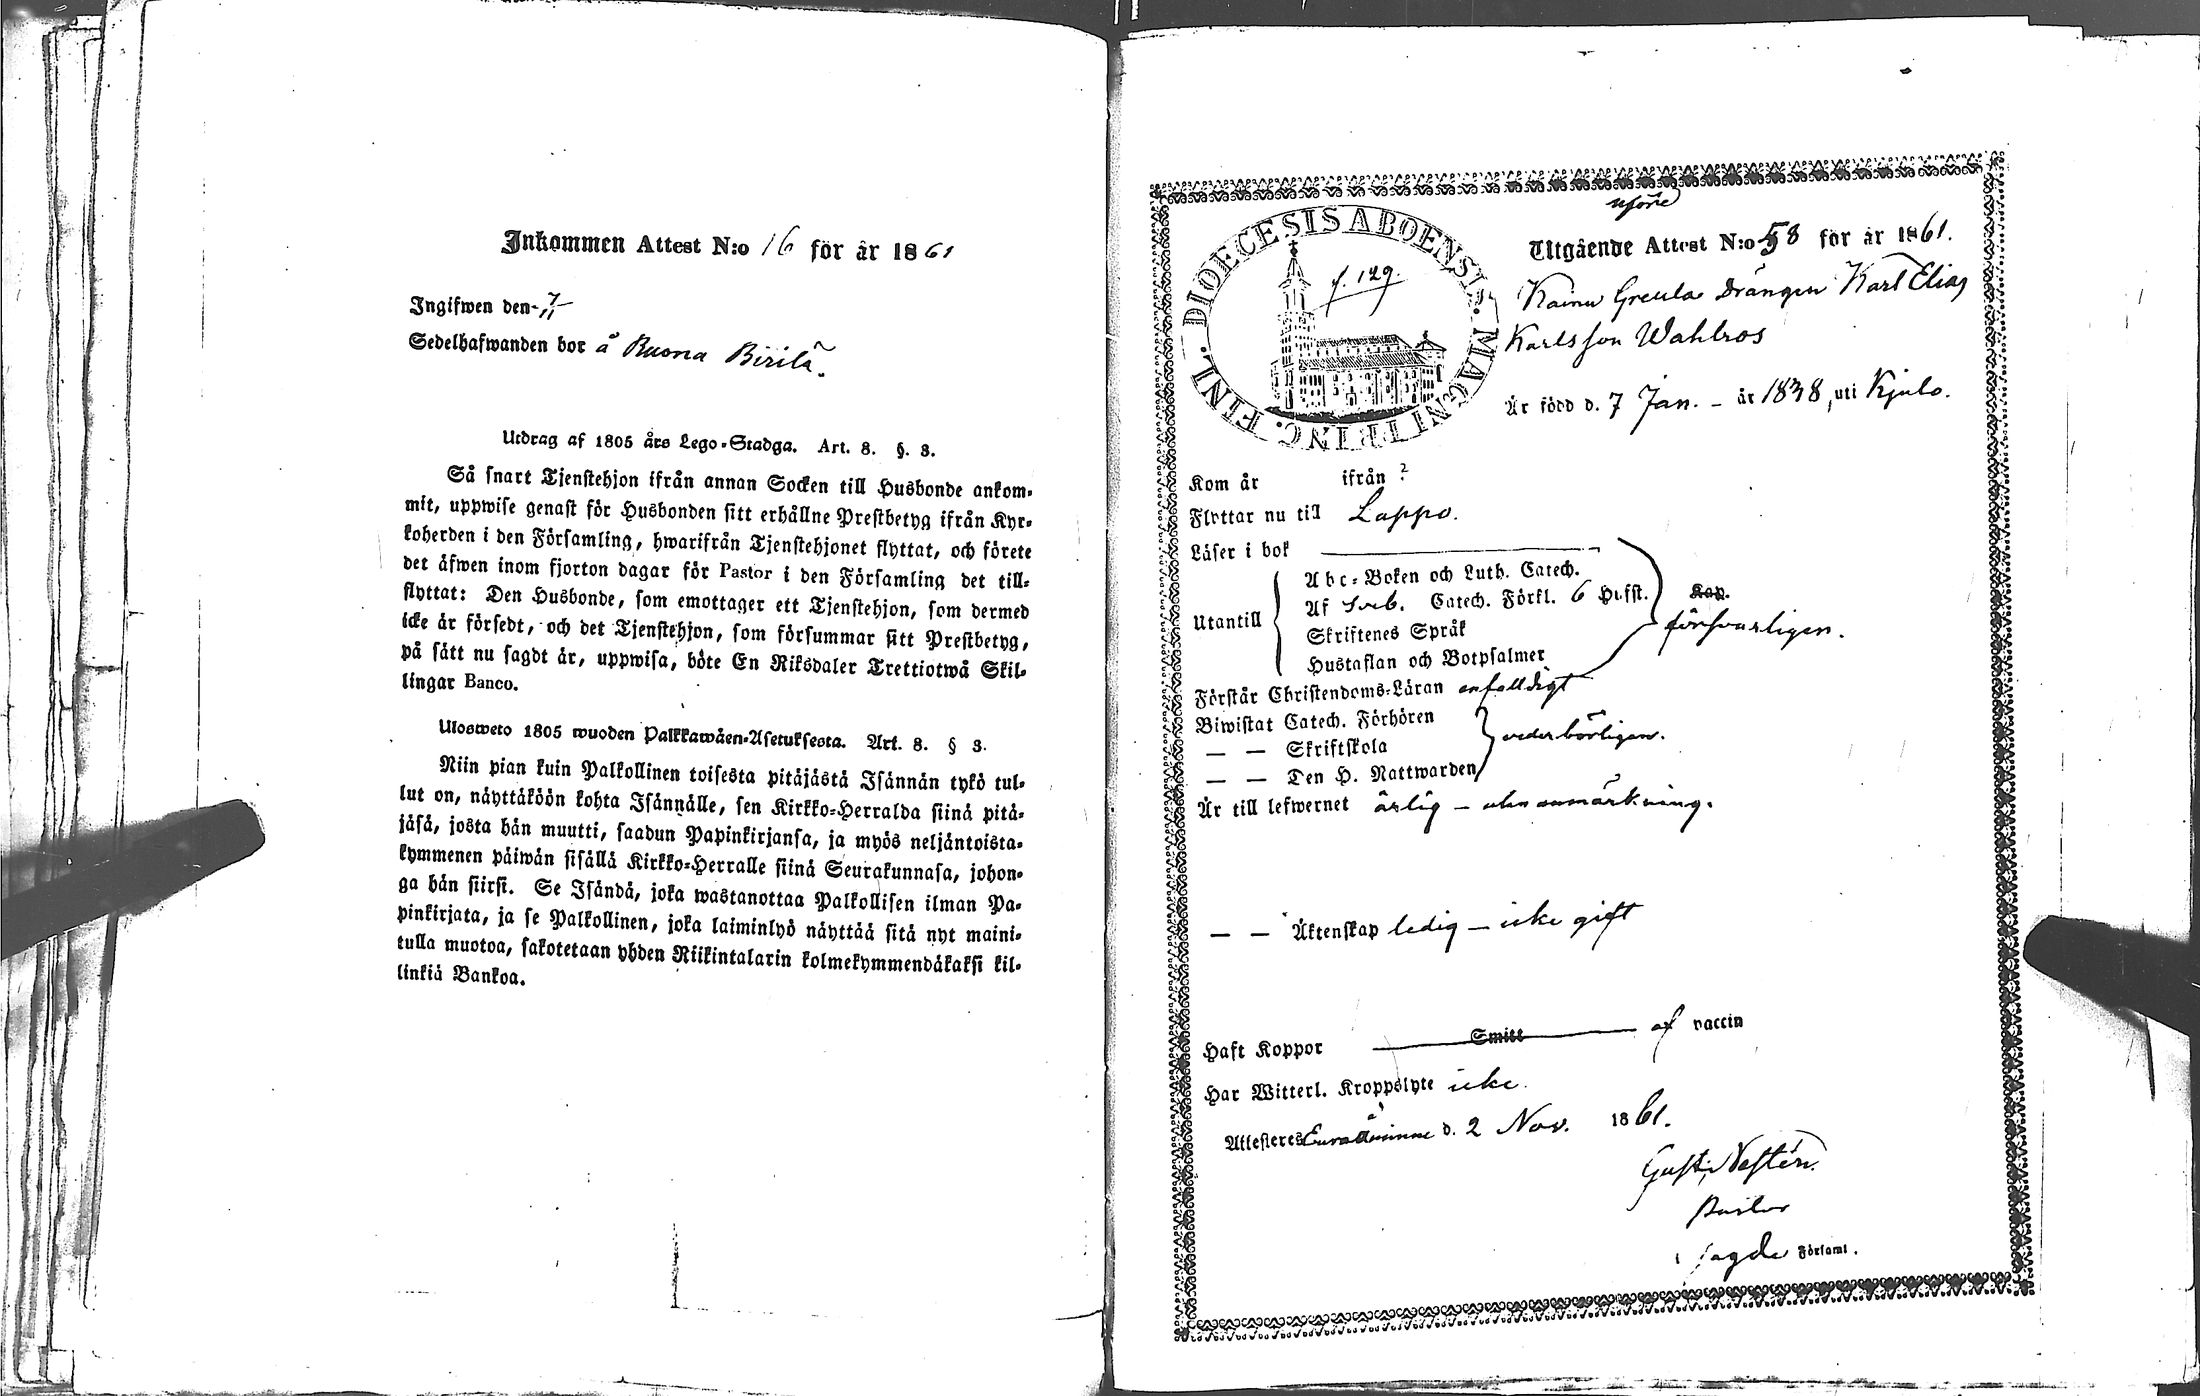 Inkommen Attest N:o 16 för år 1861
Ingifwen den 7/11
Sedelhafwanden bor å Ruona Birilä.
Utdrag af 1805 års Lego-Stadga. Art. 8. §. 3.
Så snart Tjenstehjon ifrån annan Socken till Husbonde ankom-
mit, uppwise genast för Husbonden sitt erhållne Prestbetyg ifrån Kyr-
koherden i den Församling, hwarifrån Tjenstehjonet flyttat, och förete
det äfwen inom fjorton dagar för Pastor i den Församling det till-
flyttat: Den Husbonde, som emottager ett Tjenstehjon, som dermed
icke är försedt, och det Tjenstehjon, som försummar sitt Prestbetyg,
på sätt nu sagdt är, uppwisa, böte En Riksdaler Trettiotwå Skil-
lingar Banco.
Ulosweto 1805 wuoden Palkkawäen-Asetuksesta. Art. 8. § 3.
Niin pian kuin Palkollinen toisesta pitäjästä Isännän tykö tul-
lut on, näyttäköön kohta Isännälle, sen Kirkko-Herralda siinä pitä-
jäsä, josta hän muutti, saadun Papinkirjansa, ja myös neljäntoista-
kymmenen päiwän sisällä Kirkko-Herralle siinä Seurakunnasa, johon-
ga hän siirsi. Se Isändä, joka wastanottaa Palkollisen ilman Pa-
pinkirjata, ja se Palkollinen, joka laiminlyö näyttää sitä nyt maini-
tulla muotoa, sakotetaan yhden Riikintalarin kolmekymmendäkaksi kil-
linkiä Bankoa.
DIOECESIS ABOENSIS. MAGNI PRINC. FINL.
f. 129.
Utgående Attest N:o 58 för år 1861.
Kainu Greula Drängen Karl Elias
Karlsson Wahlros
Är född d. 7 Jan. - år 1838, uti Kjulo.
Kom år ifrån ?
Flyttar nu till Lappo.
Läser i bok
Utantill
Abc-Boken och Luth. Catech.
Af Sveb. Catech. Förkl. 6 Hufst.
Skriftenes Språk
Hustaflan och Botpsalmer
Kap.
försvarligen.
Förstår Christendoms-Läran enfalldigt
Biwistat Catech. Förhören
— — Skriftskola
— — Den H. Nattwarden
vederbörligen.
Är till lefwernet ärlig — utan anmärkning.
— — Äktenskap ledig — icke gift
Haft Koppor Smitt af vaccin
Har Witterl. Kroppslyte icke
Attesteres Euraåminne d. 2 Nov. 1861.
Gust. Vestén.
Pastor
i sagde Församl.